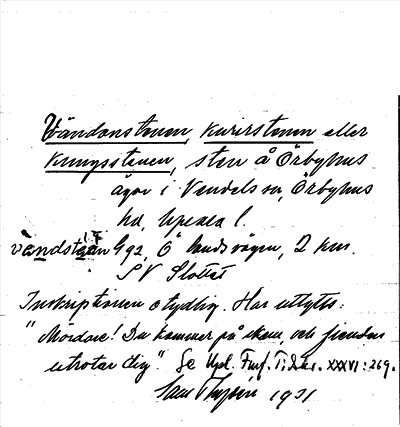 Vändanstenen, Kurirstenen eller
Kungsstenen, sten å Örbyhus
ägor i Vendels sn, Örbyhus
hd, Upsala l.
vändstään G 92, Ö landsvägen, 2 km.
SV Slottet
Inskriptionen otydlig. Har uttytts:
"Mördare! Du kommer på skam, och fienden
utrotar dig". Se Upl. Fmf. Tidskr. XXXVI: 269.
1931